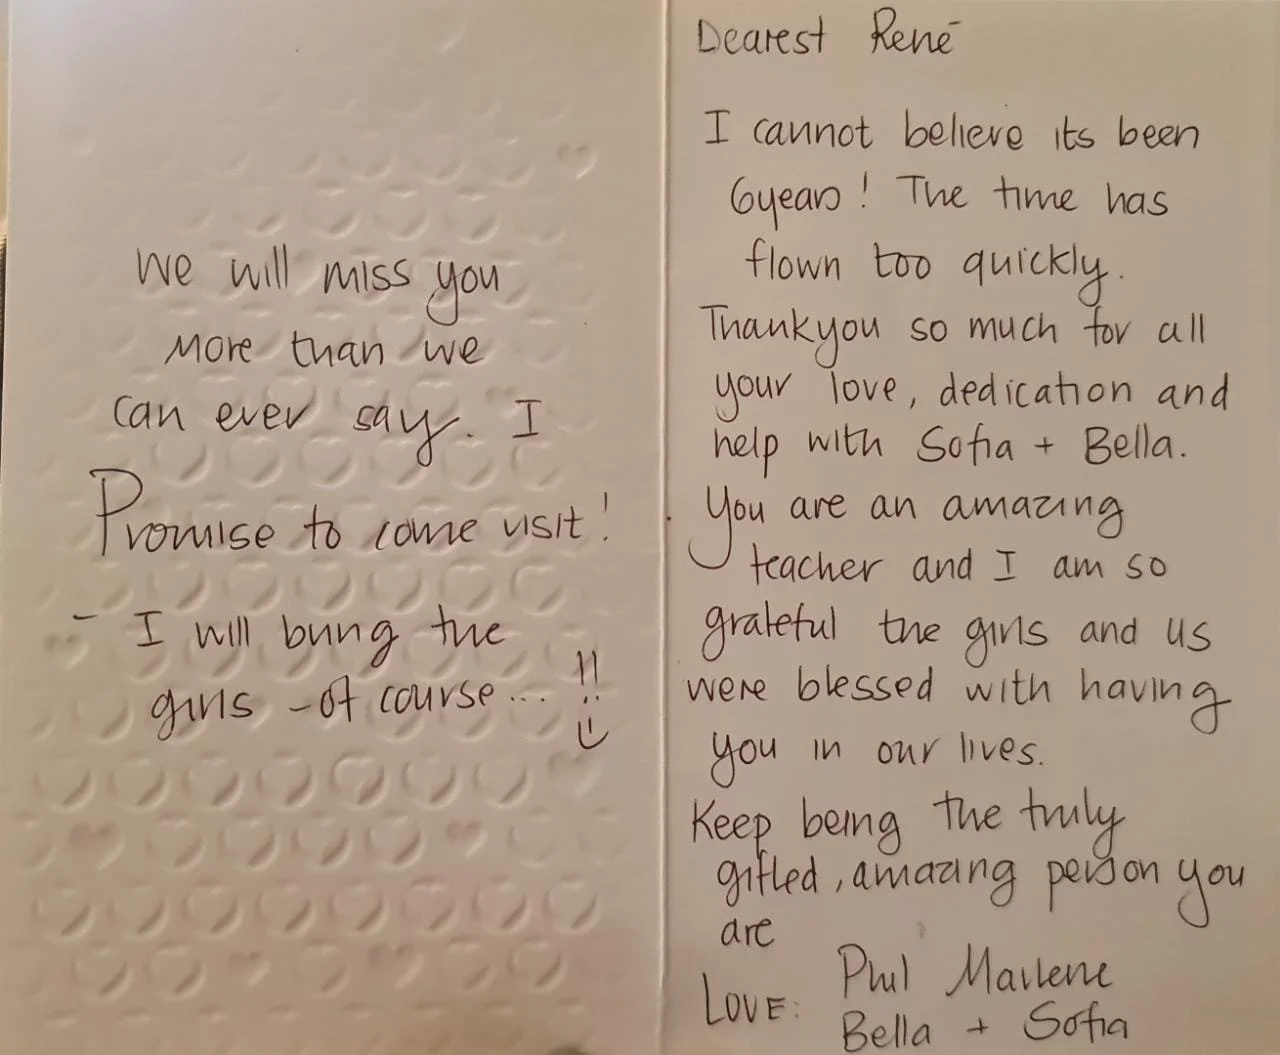 We will miss you
more than we
can ever say. I
Promise to come visit!
- I will bring the
girls - of course... !!
Dearest René
I cannot believe its been
6years! The time has
flown too quickly.
Thankyou so much for all
your love, dedication and
help with Sofia + Bella.
You are an amazing
teacher and I am so
grateful the girls and us
were blessed with having
you in our lives.
Keep being the truly
gifted, amazing person you
are
LOVE: Phil Marlene
Bella + Sofia